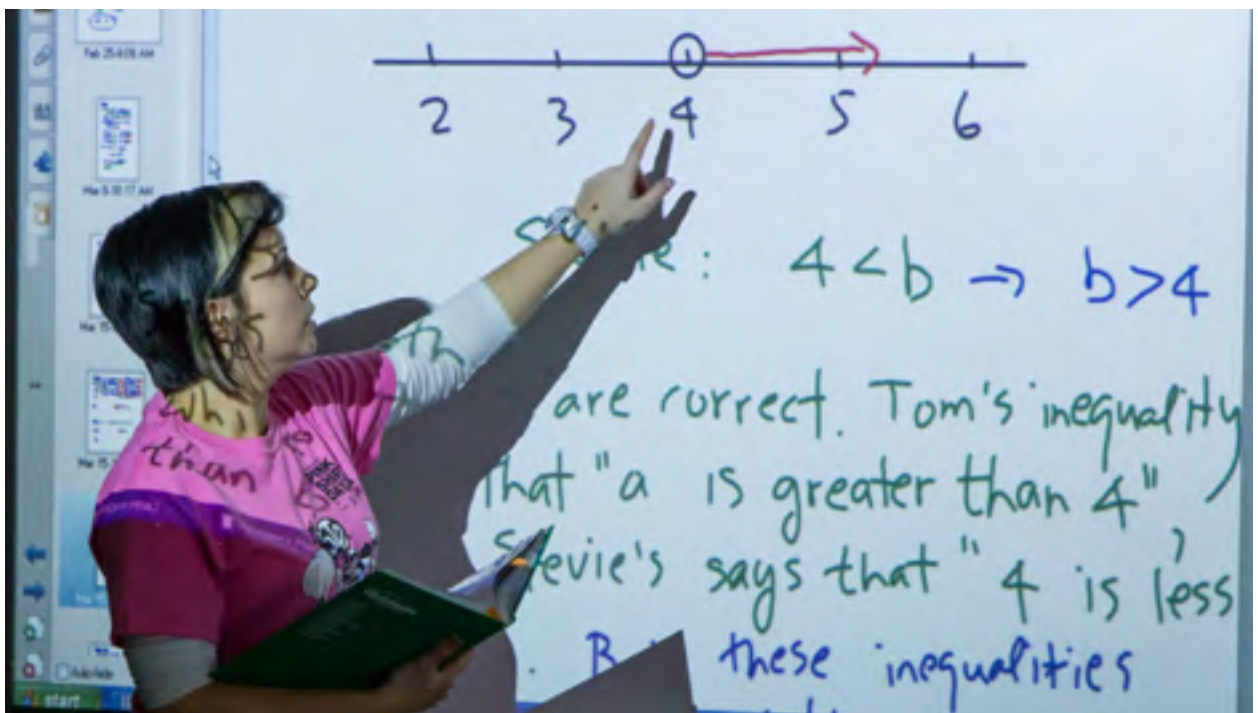 Feb 25-8:09 AM
2 3 4 5 6
Mar 5-10:17 AM
: 4 < b → b > 4
are correct. Tom's inequality
that "a is greater than 4",
Stevie's says that "4 is less
than
these inequalities
start